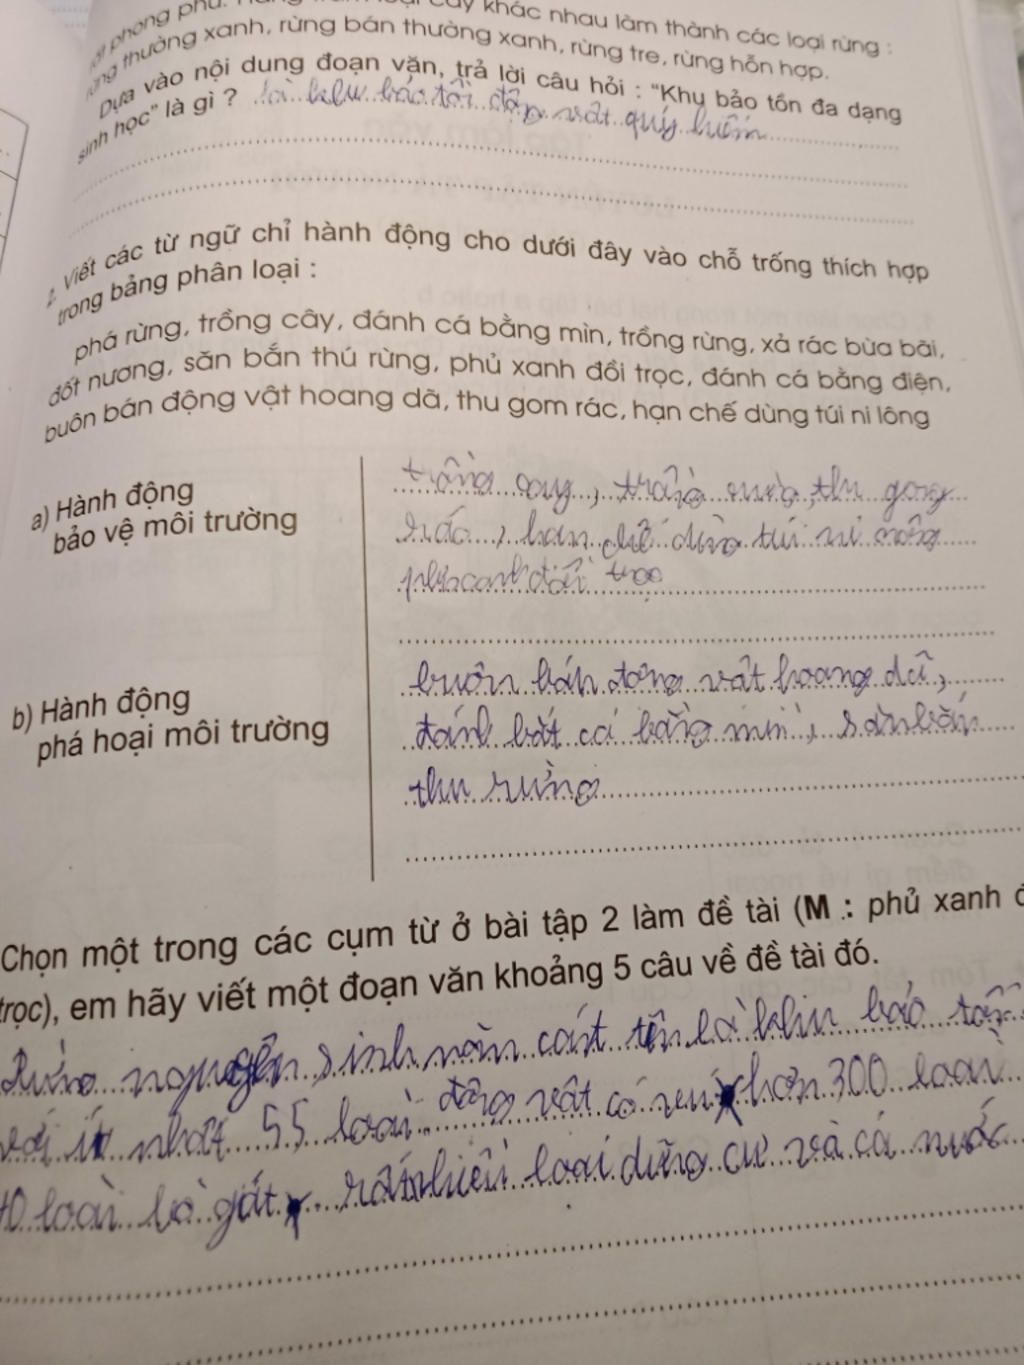 phong phú. khác nhau làm thành các loại rừng :
thường xanh, rừng bán thường xanh, rừng tre, rừng hỗn hợp.
Dựa vào nội dung đoạn văn, trả lời câu hỏi : "Khu bảo tồn đa dạng
sinh học" là gì ? là khu bảo tồi động vật quý
2. Viết các từ ngữ chỉ hành động cho dưới đây vào chỗ trống thích hợp
trong bảng phân loại :
phá rừng, trồng cây, đánh cá bằng mìn, trồng rừng, xả rác bừa bãi,
đốt nương, săn bắn thú rừng, phủ xanh đồi trọc, đánh cá bằng điện,
buôn bán động vật hoang dã, thu gom rác, hạn chế dùng túi ni lông
a) Hành động
bảo vệ môi trường
trồng cay, trồng thu gong
rác, han chế dùng túi ni
đồi trọc
b) Hành động
phá hoại môi trường
buôn bán động vật hoang dã,
bắt cá bằng min, săn bắn
thu rừng
Chọn một trong các cụm từ ở bài tập 2 làm đề tài (M : phủ xanh
trọc), em hãy viết một đoạn văn khoảng 5 câu về đề tài đó.
Rừng nguyên sinh nằm cát tên là khu bảo tồn
với ít nhất 55 loài động vật có vú hơn 300 loài
40 loài bò gát rất nhiều loài dừng cư và cá nước